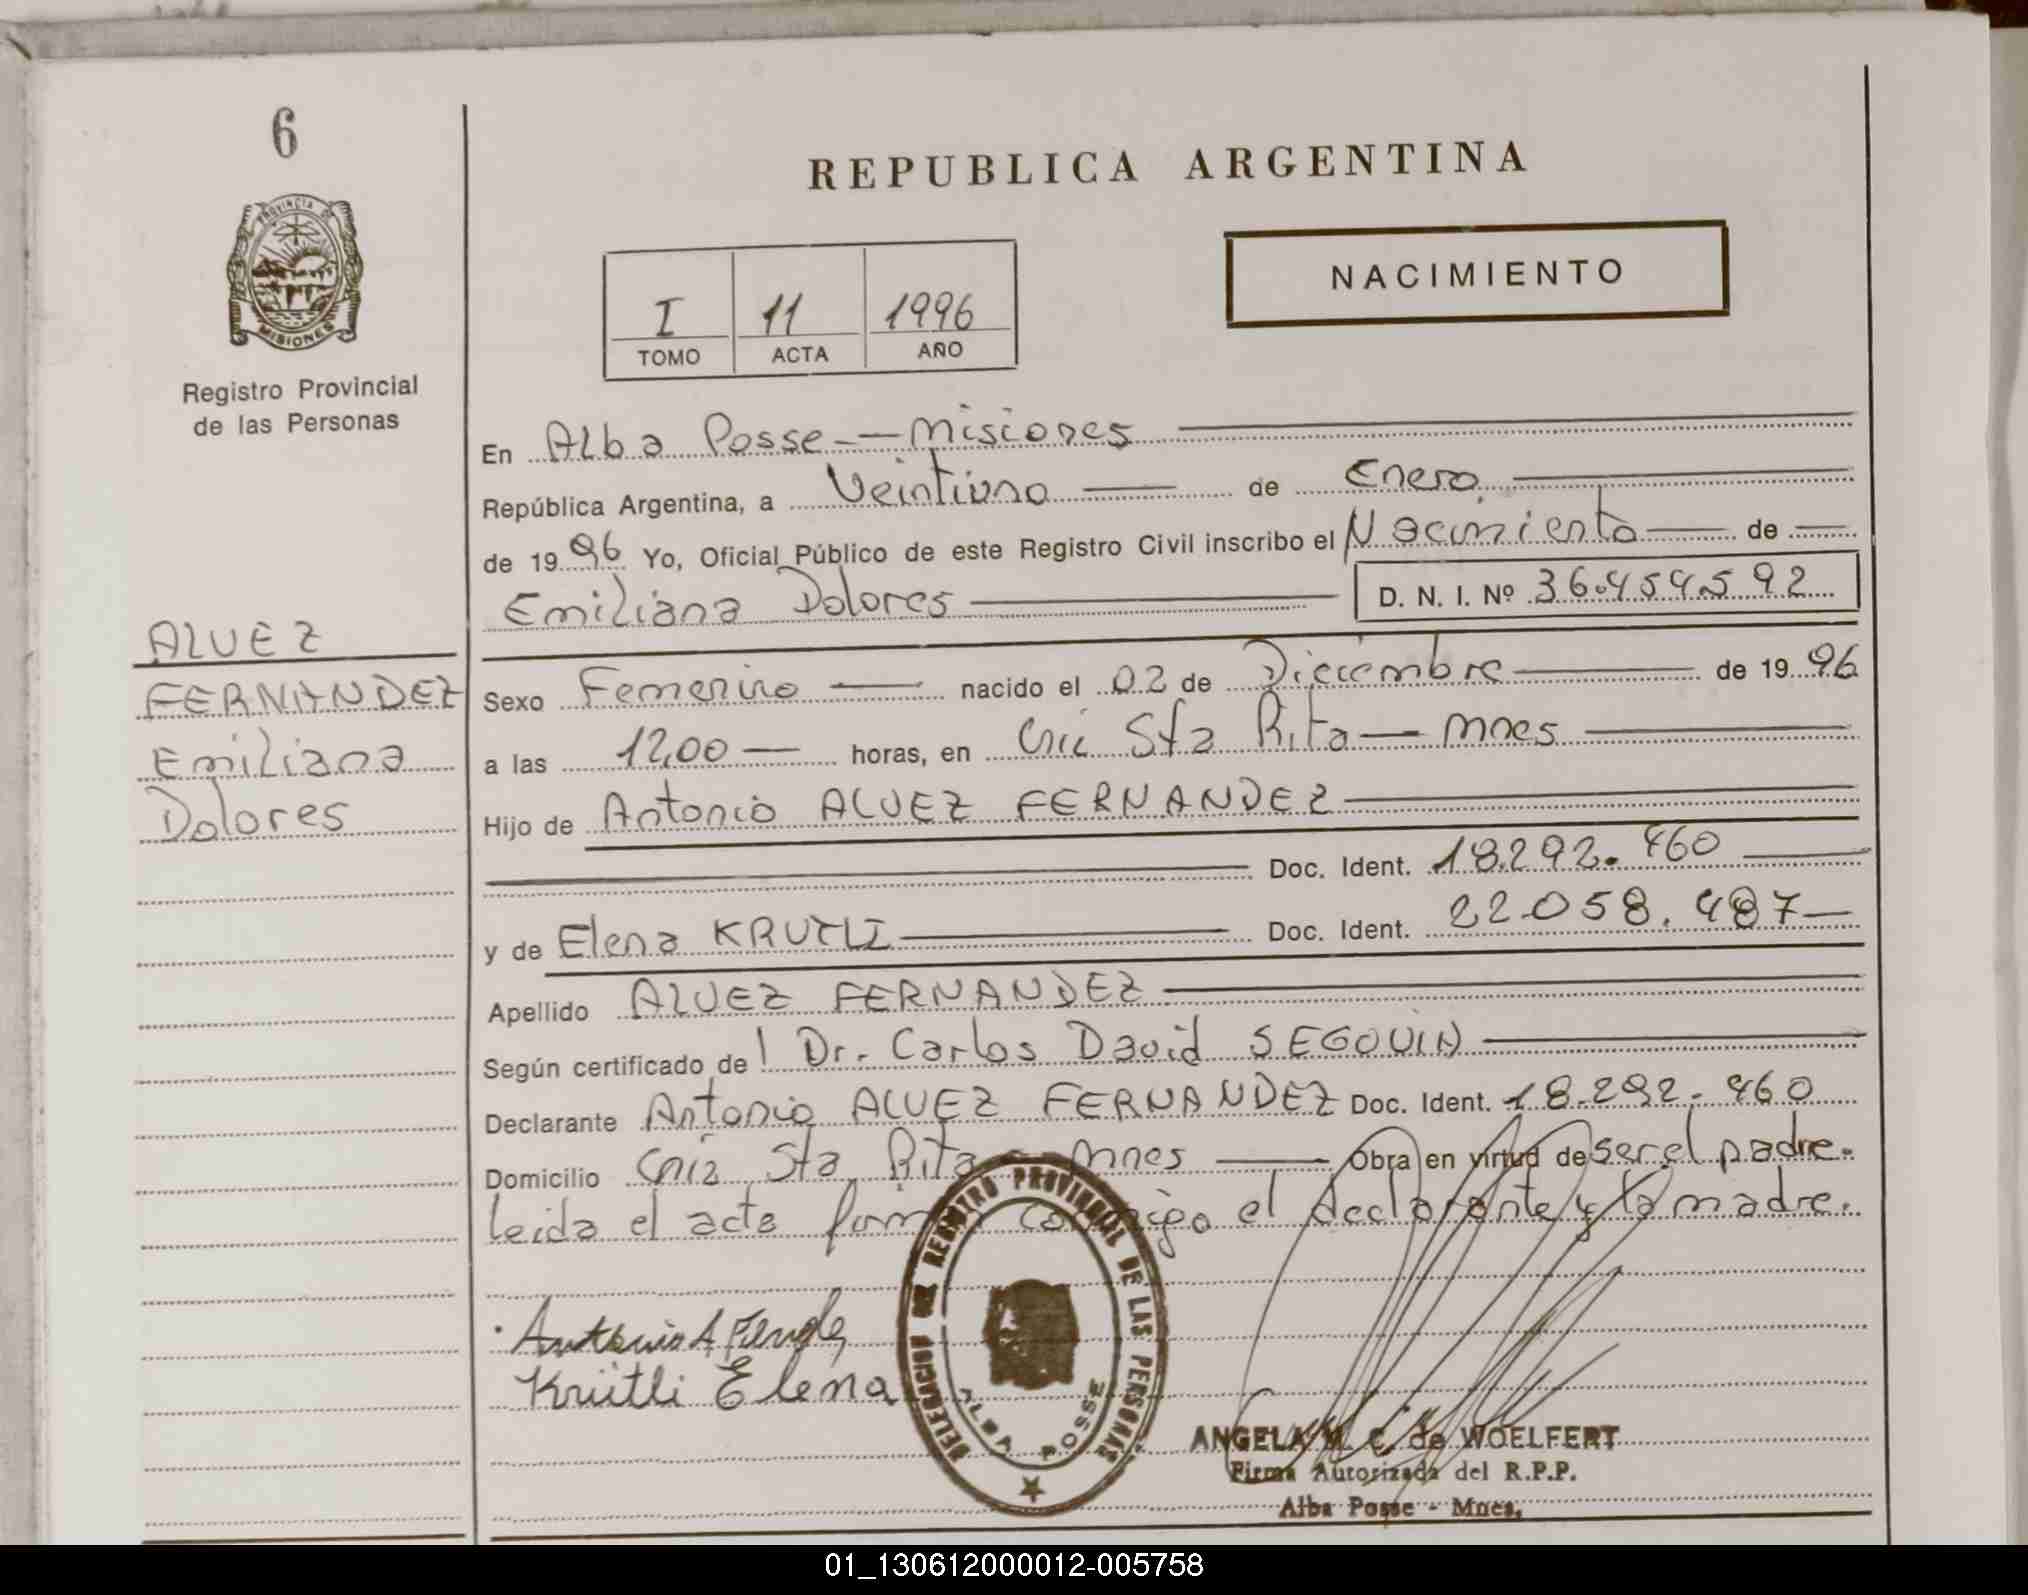 6
PROVINCIA DE
MISIONES
Registro Provincial
de las Personas
REPUBLICA ARGENTINA
NACIMIENTO
I 11 1996
TOMO ACTA AÑO
En Alba Posse - Misiones
República Argentina, a Veintiuno de Enero
de 1996 Yo, Oficial Público de este Registro Civil inscribo el Nacimiento de
Emiliana Dolores D. N. I. Nº 36.454.592
ALVEZ
FERNANDEZ
Emiliana
Dolores
Sexo Femenino nacido el 02 de Diciembre de 1996
a las 12,00 horas, en Sta Rita - Mnes
Hijo de Antonio ALVEZ FERNANDEZ
Doc. Ident. 18.292.460
y de Elena KRUTLI Doc. Ident. 22.058.487
Apellido ALVEZ FERNANDEZ
Según certificado del Dr. Carlos David SEGOVIA
Declarante Antonio ALVEZ FERNANDEZ Doc. Ident. 18.292.460
Domicilio Sta Rita - Mnes Obra en virtud de ser el padre.
leida el acta conmigo el declarante y la madre.
Krütli Elena
DELEGACION DEL REGISTRO PROVINCIAL DE LAS PERSONAS
ALBA POSSE
ANGELA M. C. de WOELFERT
Firma Autorizada del R.P.P.
Alba Posse - Mnes.
01_130612000012-005758